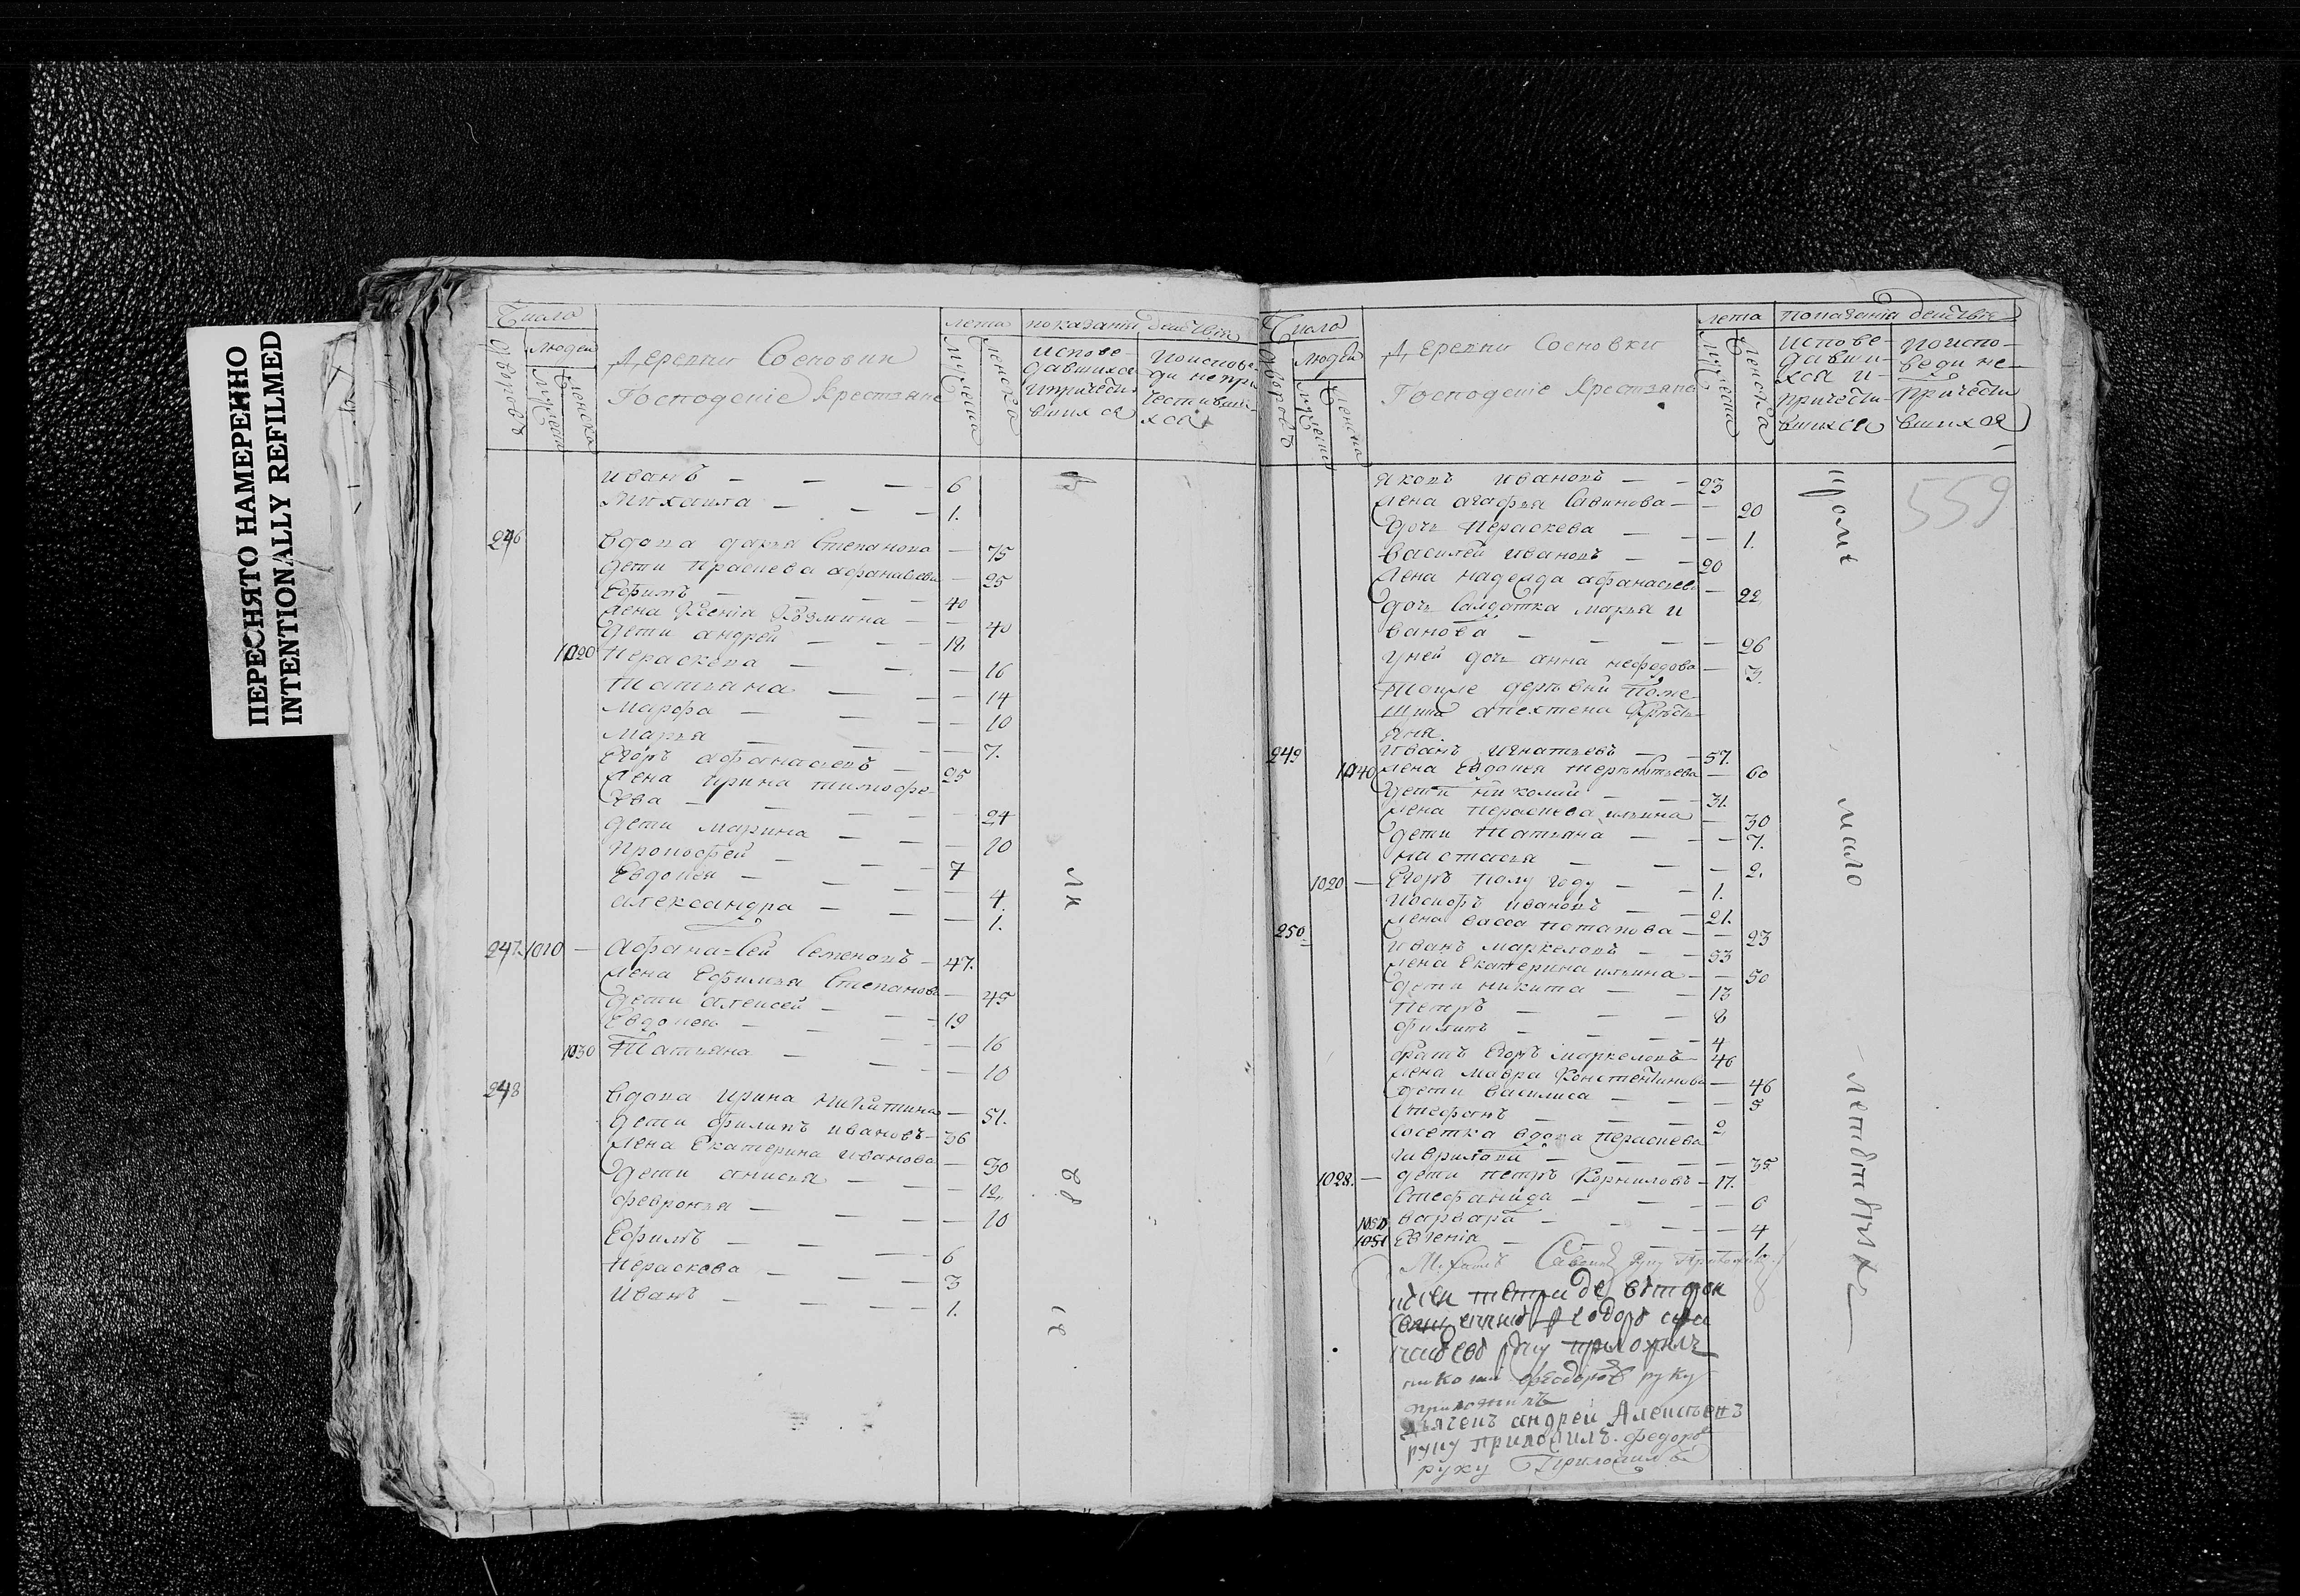 ПЕРЕСНЯТО НАМЕРЕННО
INTENTIONALLY REFILMED
Число
людей
дворовъ
мужеска
женска
Деревни Сосновки
Господскіе крестьяне
лета
мужеска
женска
показаніи действія
испове-
давшихся
и причасти-
вшихся
по испове-
ди непри-
частивши-
хся
иванъ — — — 6
Михаила — — — 1.
246 вдова дарья Степанова — 75
дети праскева афанасьева — 25
Ефимъ — — — 40
жена Ксенія Козмина — — 40
дети андрей — — — 18
1020 Параскева — — — 16
Татьяна — — — 14
Марфа — — — 10
Марья — — — 7.
Егоръ афанасьевъ — 25
жена ирина тимофе-
ева — — — 24
дети марина — — — 10
Прокофей — — — 7
Евдокея — — — 4.
александра — — — 1.
247. 1010 — Афанасей Семеновъ — 47.
жена Ефимья Степанова — 45
дети алексей — — — 19
Евдокея — — — 16
1030 Татьяна — — — 10
248 вдова ирина никитина — 51.
дети филипъ ивановъ — 36
жена Екатерина иванова — 30
дети анисья — — — 12
февронья — — — 10
Ефимъ — — — 6
Параскева — — — 3
Иванъ — — — 1.
Число
людей
дворовъ
мужеска
женска
Деревни Сосновки
Господскіе крестьяне
лета
мужеска
женска
показанія действія
испове-
давши-
хся и
причасти-
вшихся
по испо-
веди не-
причасти
вшихся
559
яковъ ивановъ — — 23
жена агафья Савинова — — 20
дочь Параскева — — — 1.
василей ивановъ — — 20
жена надежда афанасьева — 22
дочь Салдатка марья и
ванова — — — 26
у ней дочь анна нефедова — 3.
Тоя же деревни Поме-
щика
249 иванъ игнатьевъ — — 57.
1040 жена Евдокея — 60
дети николай — — — 31.
жена Параскева ильина — 30
дети Татьяна — — — 7.
настасья — — — 2.
1020 — Егоръ полу году — — 1.
Иосифъ ивановъ — — 21.
жена васса потапова — — 23
250 иванъ маркеловъ — — 53
жена Екатерина ильина — — 50
дети никита — — 13
Петръ — — — 8
филипъ — — — 4
братъ Егоръ маркеловъ — 46
жена мавра Константинова — 46
дети василиса — — — 5
Стефанъ — — — 2
соседка вдова параскева
гаврилова — — — 35
1028. — дети петръ Корниловъ — 17.
Стефанида — — — 6
1050 варвара — — — 4
1051 Евгенія — — — 1.
руку приложилъ
николай феодоровъ руку
приложилъ
дьячекъ андрей Алексеевъ
руку приложилъ. федоръ
руку Приложилъ